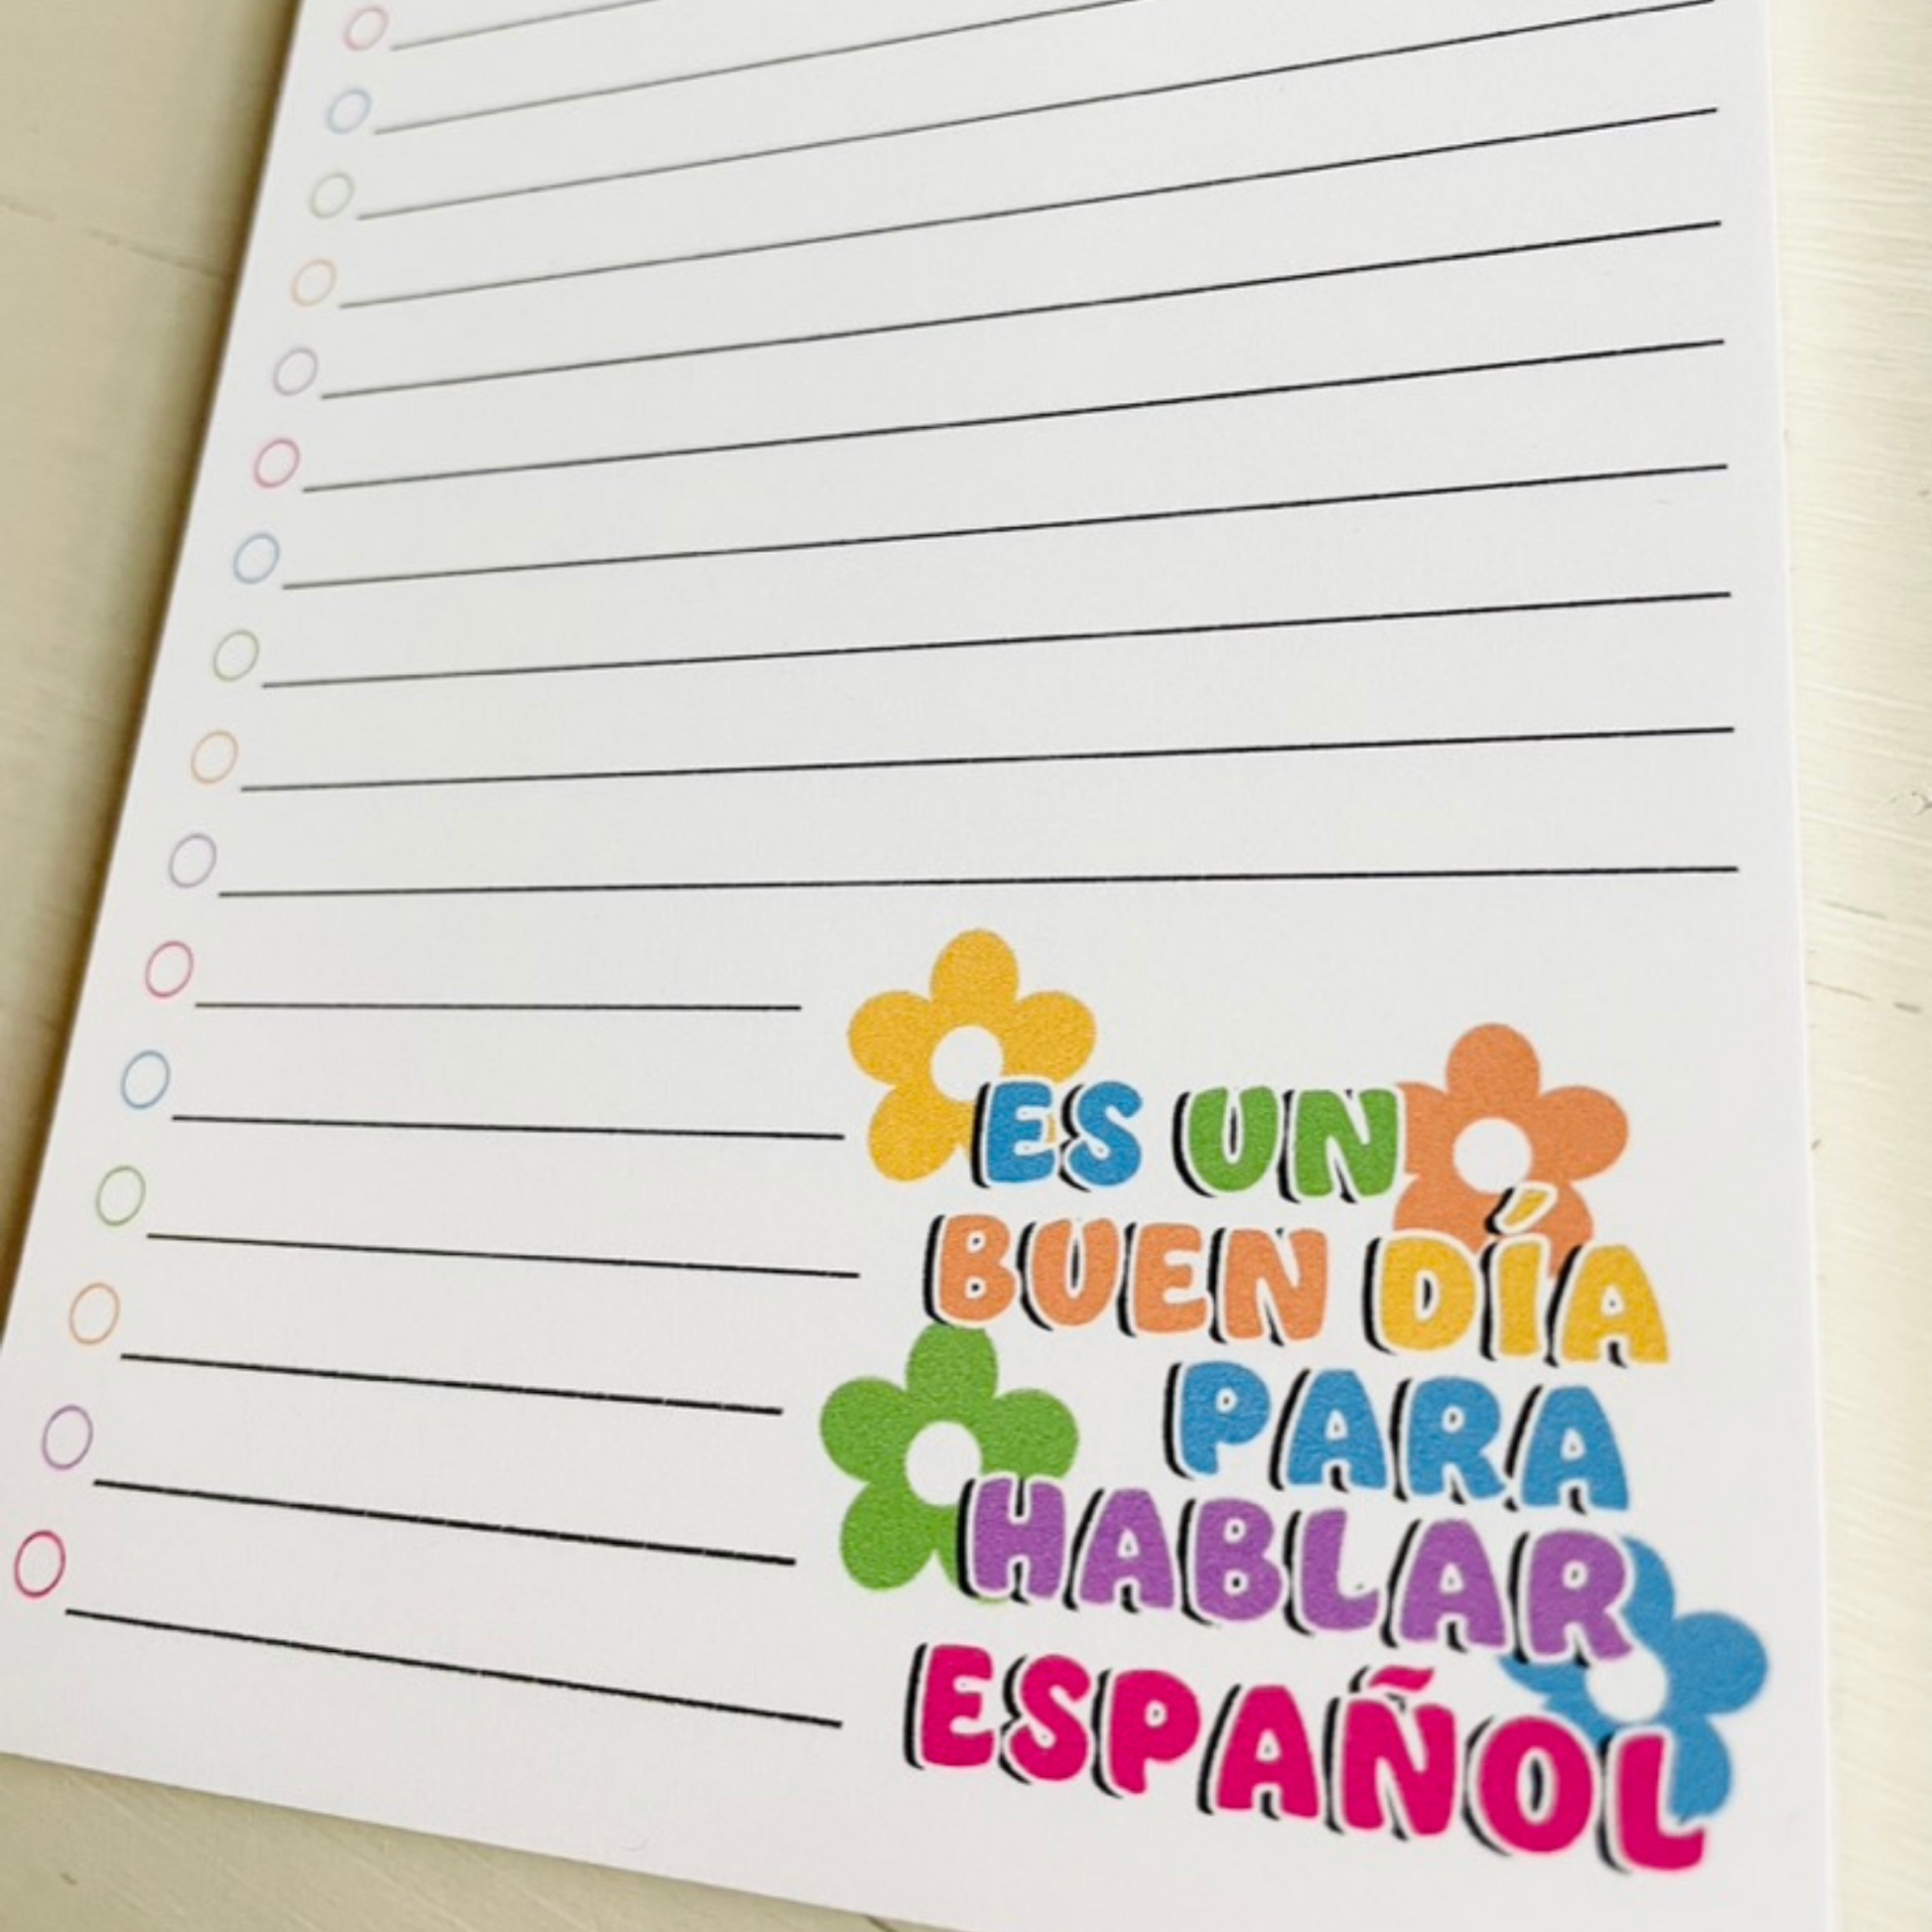 ES UN
BUEN DÍA
PARA
HABLAR
ESPAÑOL